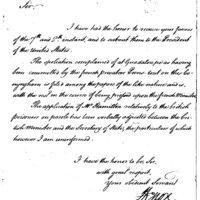 Sir.
I have had the honor to receive your favors
of the 7th and 8th instant, and to submit them to the President
of the United States.
The spoliation complained of at Eneas as having
been committed by the french privateer
is filed among the papers of the like nature and is,
with the rest in the course of being pressed upon the French Minister.
The application of Mr Hamilton relatively to the british
prisoners on parole has been verbally adjusted between the bri-
tish Minister and the Secretary of State, the particulars of which
however I am uninformed.
I have the honor to be, Sir,
with great respect,
Your obedient Servant
HKnox